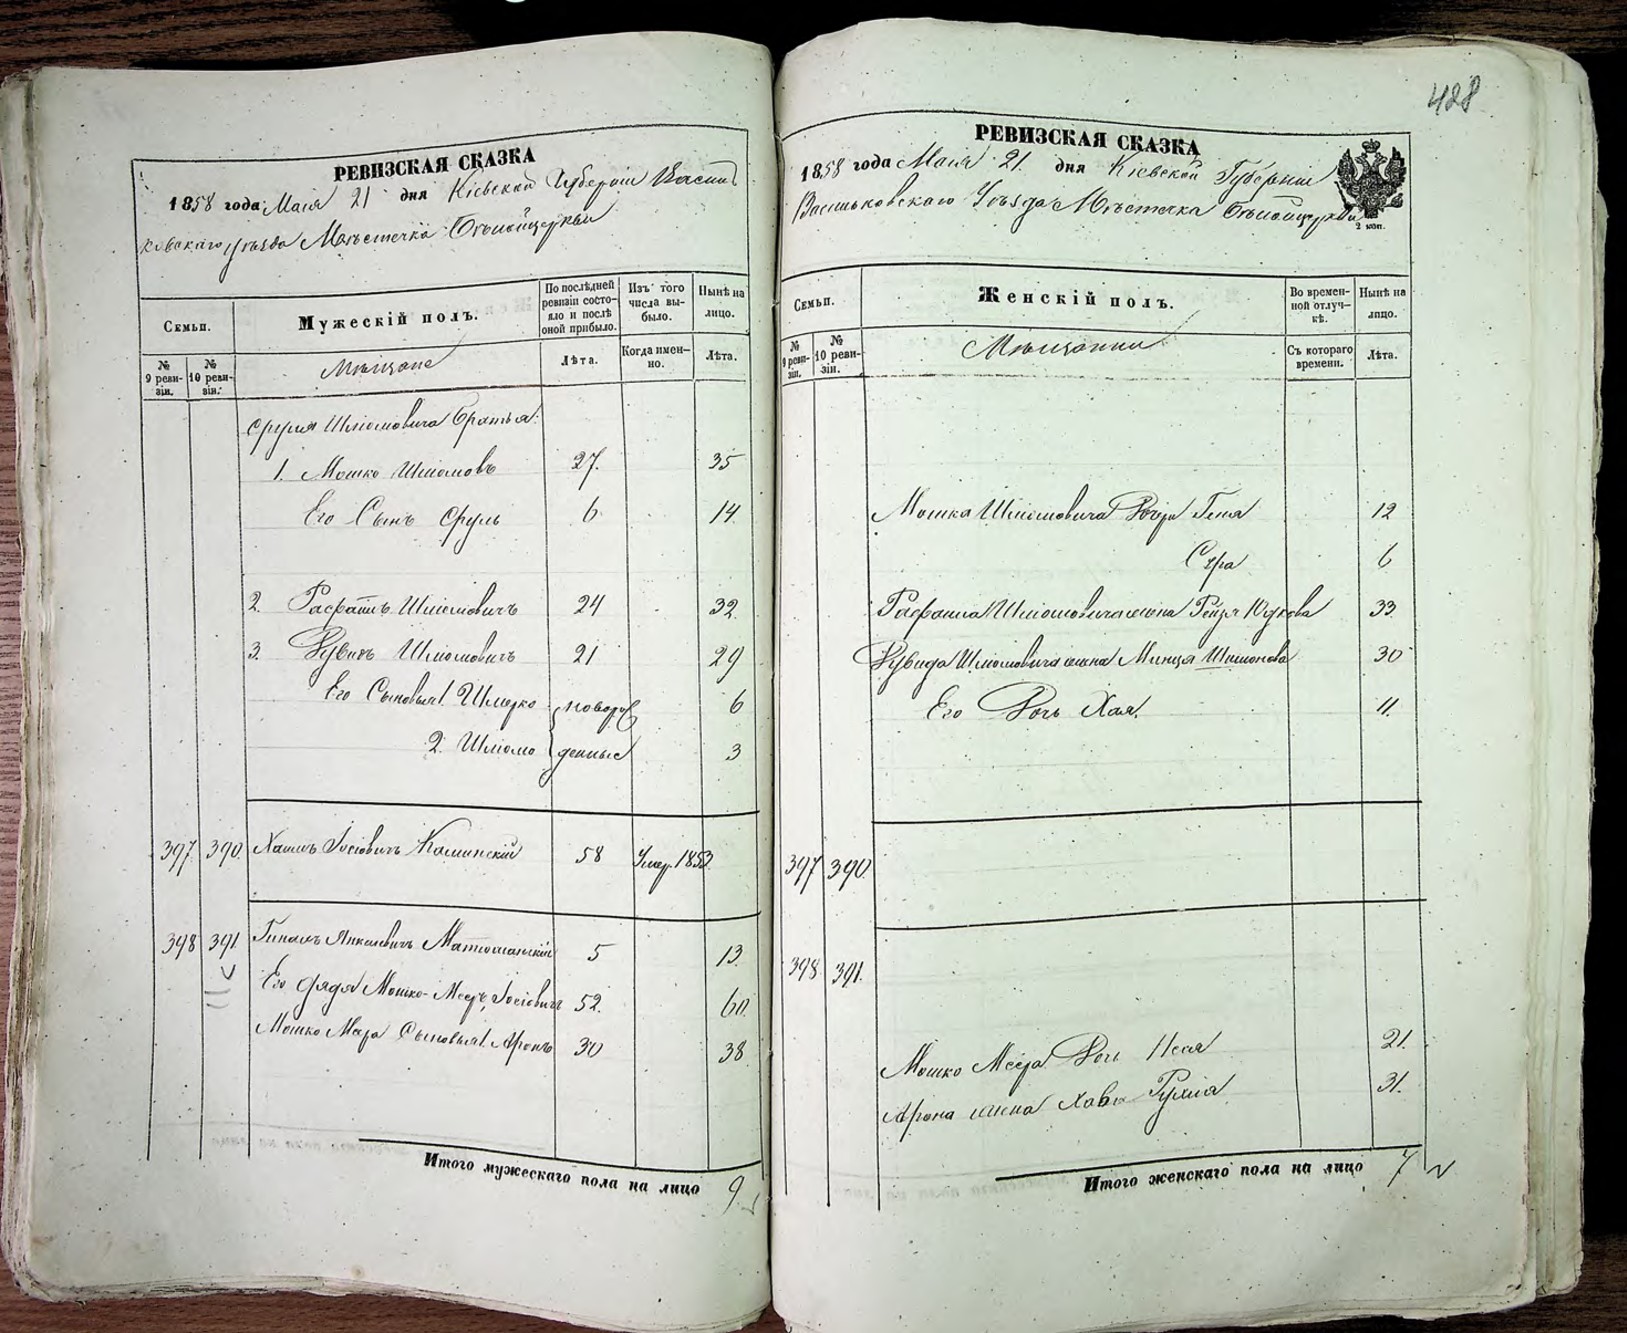 428
РЕВИЗСКАЯ СКАЗКА
1858 года Маія 21 дня Кіевской Губерніи Василь
ковскаго Уѣзда Мѣстечка Бѣлойцеркви
Семьи.
Мужескій полъ.
По послѣдней ревизіи состояло и послѣ оной прибыло.
Изъ того числа выбыло.
Нынѣ на лицо.
№ 9 ревизіи.
№ 10 ревизіи.
Мѣщане
Лѣта.
Когда именно.
Лѣта.
Сруля Шліомовича Братья:
1. Мошко Шліомовъ 27. 35
Его Сынъ Сруль 6 14.
2. Рафаилъ Шліомовичъ 24 32.
3. Рувинъ Шліомовичъ 21 29
Его Сыновья 1. Шмерко новорож 6
2. Шліомо денные 3
397 390 Хаимъ Іосіовичъ Каминскій 58 Умер. 1853
398 391 Янкелевичъ 5 13.
Его дядя Мошко-Меер Іосіовичъ 52. 60.
Мошко Меера Сыновья 1. Аронъ 30 38
Итого мужескаго пола на лицо 9.
РЕВИЗСКАЯ СКАЗКА
1858 года Маія 21 дня Кіевской Губерніи
Васильковскаго Уѣзда Мѣстечка Бѣлойцеркви
2 коп.
Семьи.
Женскій полъ.
Во временной отлучкѣ.
Нынѣ на лицо.
№ 9 ревизіи.
№ 10 ревизіи.
Мѣщанки
Съ котораго времени.
Лѣта.
Мошка Шліомовича Дочери Геня 12
Сура 6
Рафаила Шліомовича жена Рейзя Юдкова 33.
Рувина Шліомовича жена Минця Шимонова 30
Его Дочь Хая. 11.
397 390.
398 391.
Мошко Меера Дочь Неся 21.
Арона жена Хава Рухля 31.
Итого женскаго пола на лицо 7